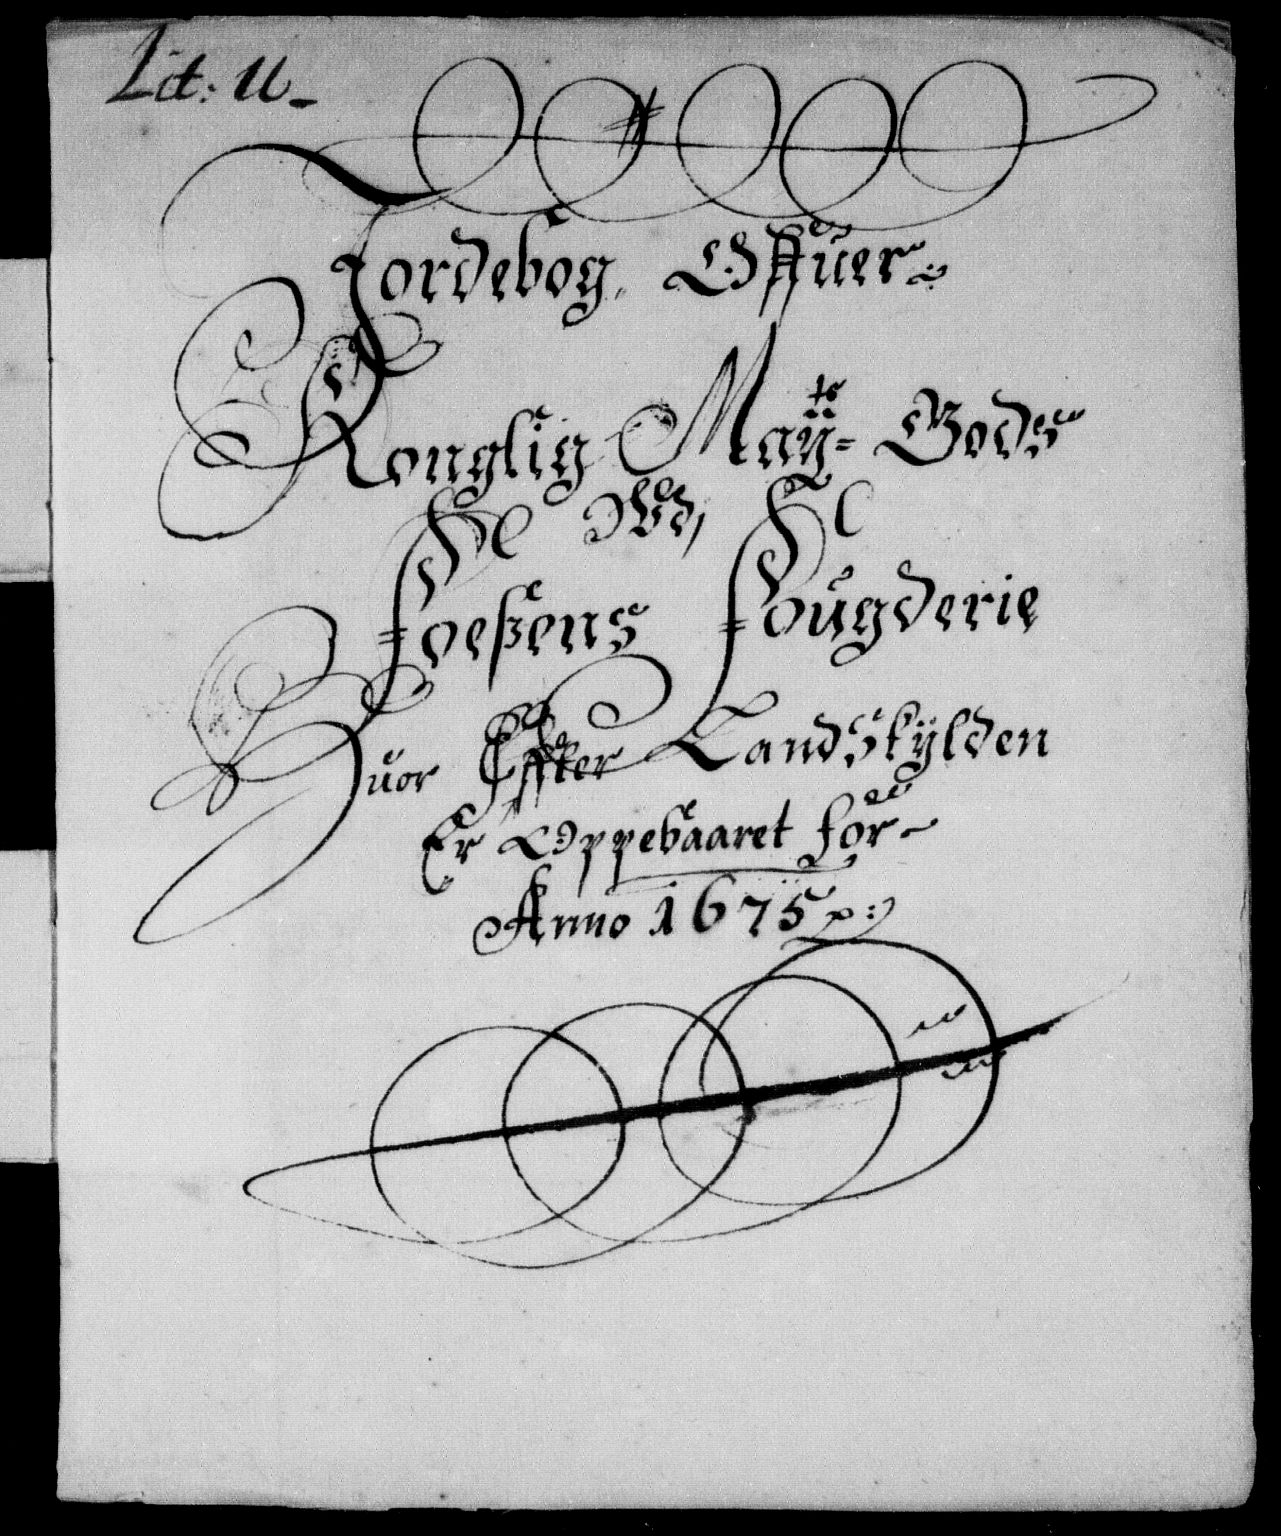 Lit: U-
Jordebog, Offuer
Konglig Maÿ=tz Gods
Vdj
Foeßens Fougderie
Huor Effter Landskÿlden
Er Oppebaaret for
Anno 1675 p: